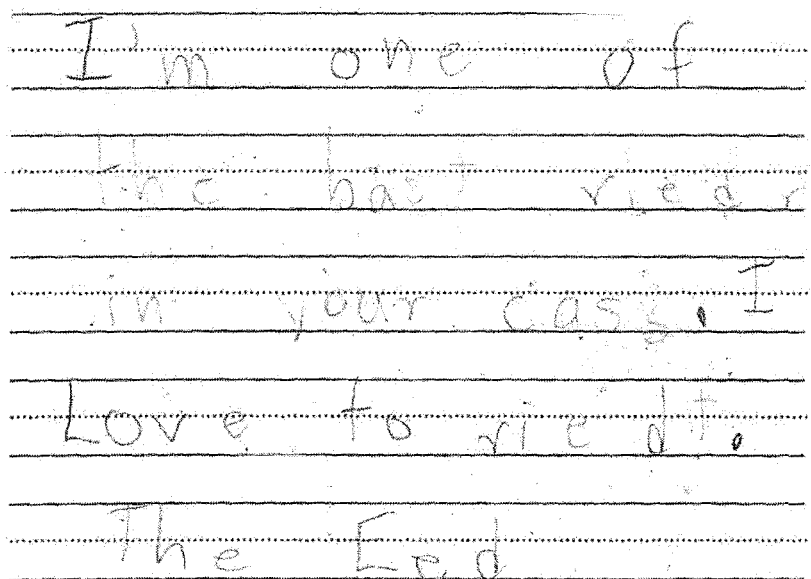 I'm one of
the bast riedr
in your cass. I
Love to riedt.
The Eed